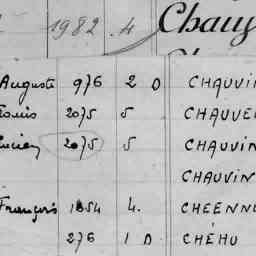 1982 .4 Chauv
Auguste 976 2 D CHAUVI
Louis 2075 5 CHAUVE
Lucien 2075 5 CHAUVIN
CHAUVIN
François 1854 4. CHEENN
276 1 D CHÉHU